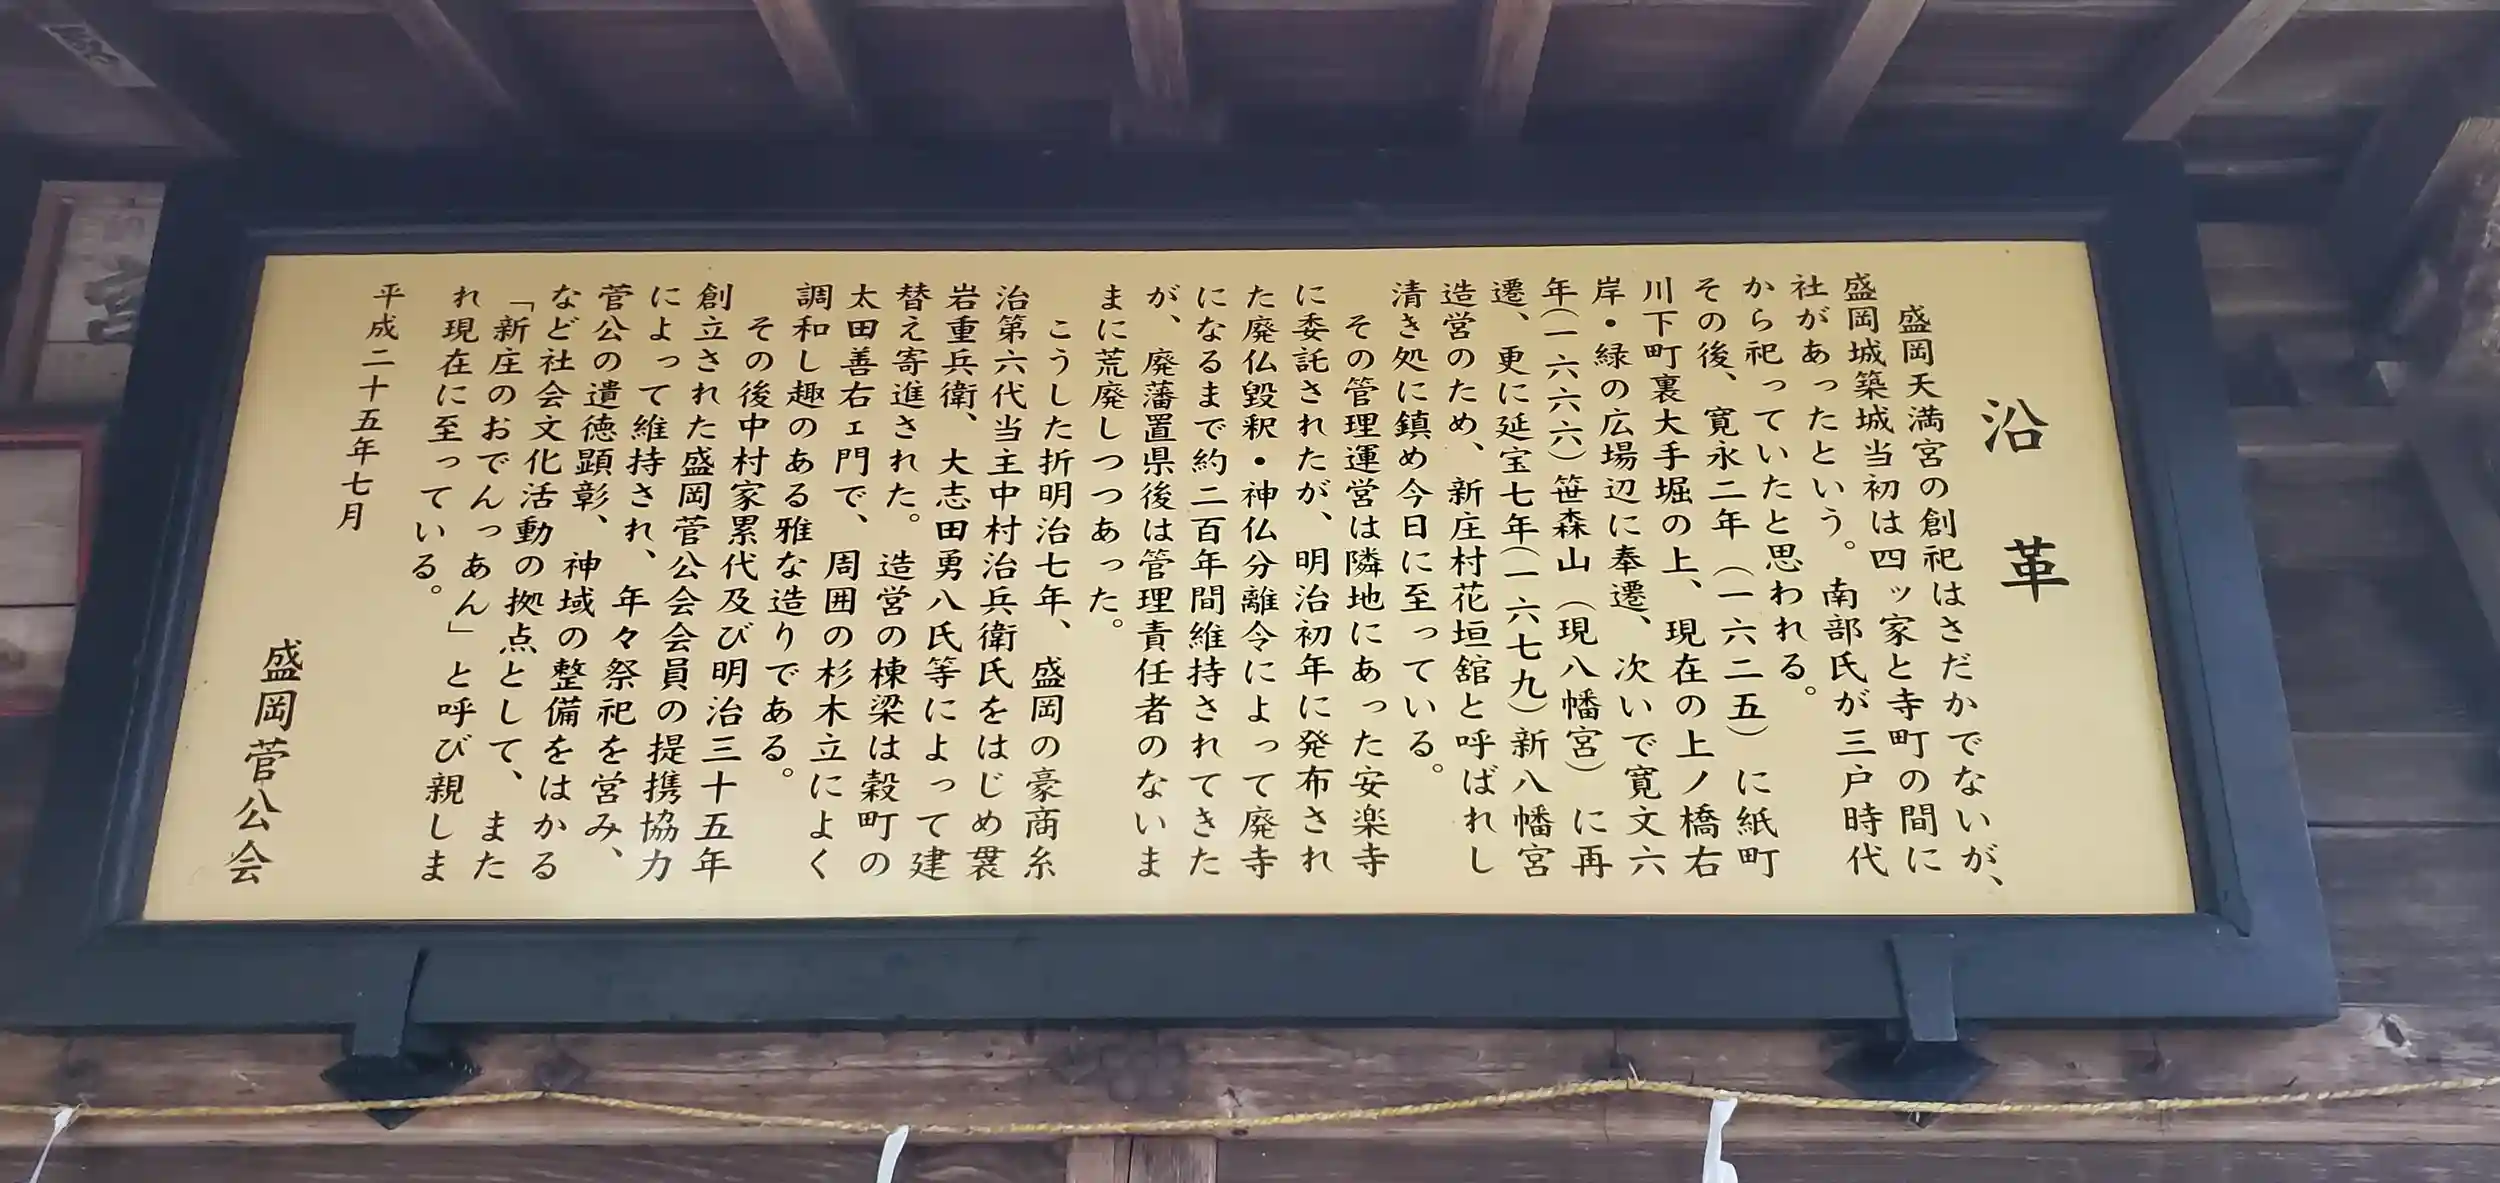 沿革
盛岡天満宮の創祀はさだかでないが、
盛岡城築城当初は四ッ家と寺町の間に
社があったという。南部氏が三戸時代
から祀っていたと思われる。
その後、寛永二年(一六二五)に紙町
川下町裏大手堀の上、現在の上ノ橋右
岸・緑の広場辺に奉遷、次いで寛文六
年(一六六六)笹森山(現八幡宮)に再
遷、更に延宝七年(一六七九)新八幡宮
造営のため、新庄村花垣舘と呼ばれし
清き処に鎮め今日に至っている。
その管理運営は隣地にあった安楽寺
に委託されたが、明治初年に発布され
た廃仏毀釈・神仏分離令によって廃寺
になるまで約二百年間維持されてきた
が、廃藩置県後は管理責任者のないま
まに荒廃しつつあった。
こうした折明治七年、盛岡の豪商糸
治第六代当主中村治兵衛氏をはじめ糞
岩重兵衛、大志田勇八氏等によって建
替え寄進された。造営の棟梁は穀町の
太田善右ェ門で、周囲の杉木立によく
調和し趣のある雅な造りである。
その後中村家累代及び明治三十五年
創立された盛岡菅公会会員の提携協力
によって維持され、年々祭祀を営み、
菅公の遺徳顕彰、神域の整備をはかる
など社会文化活動の拠点として、また
「新庄のおでんっあん」と呼び親しま
れ現在に至っている。
平成二十五年七月
盛岡菅公会
宮